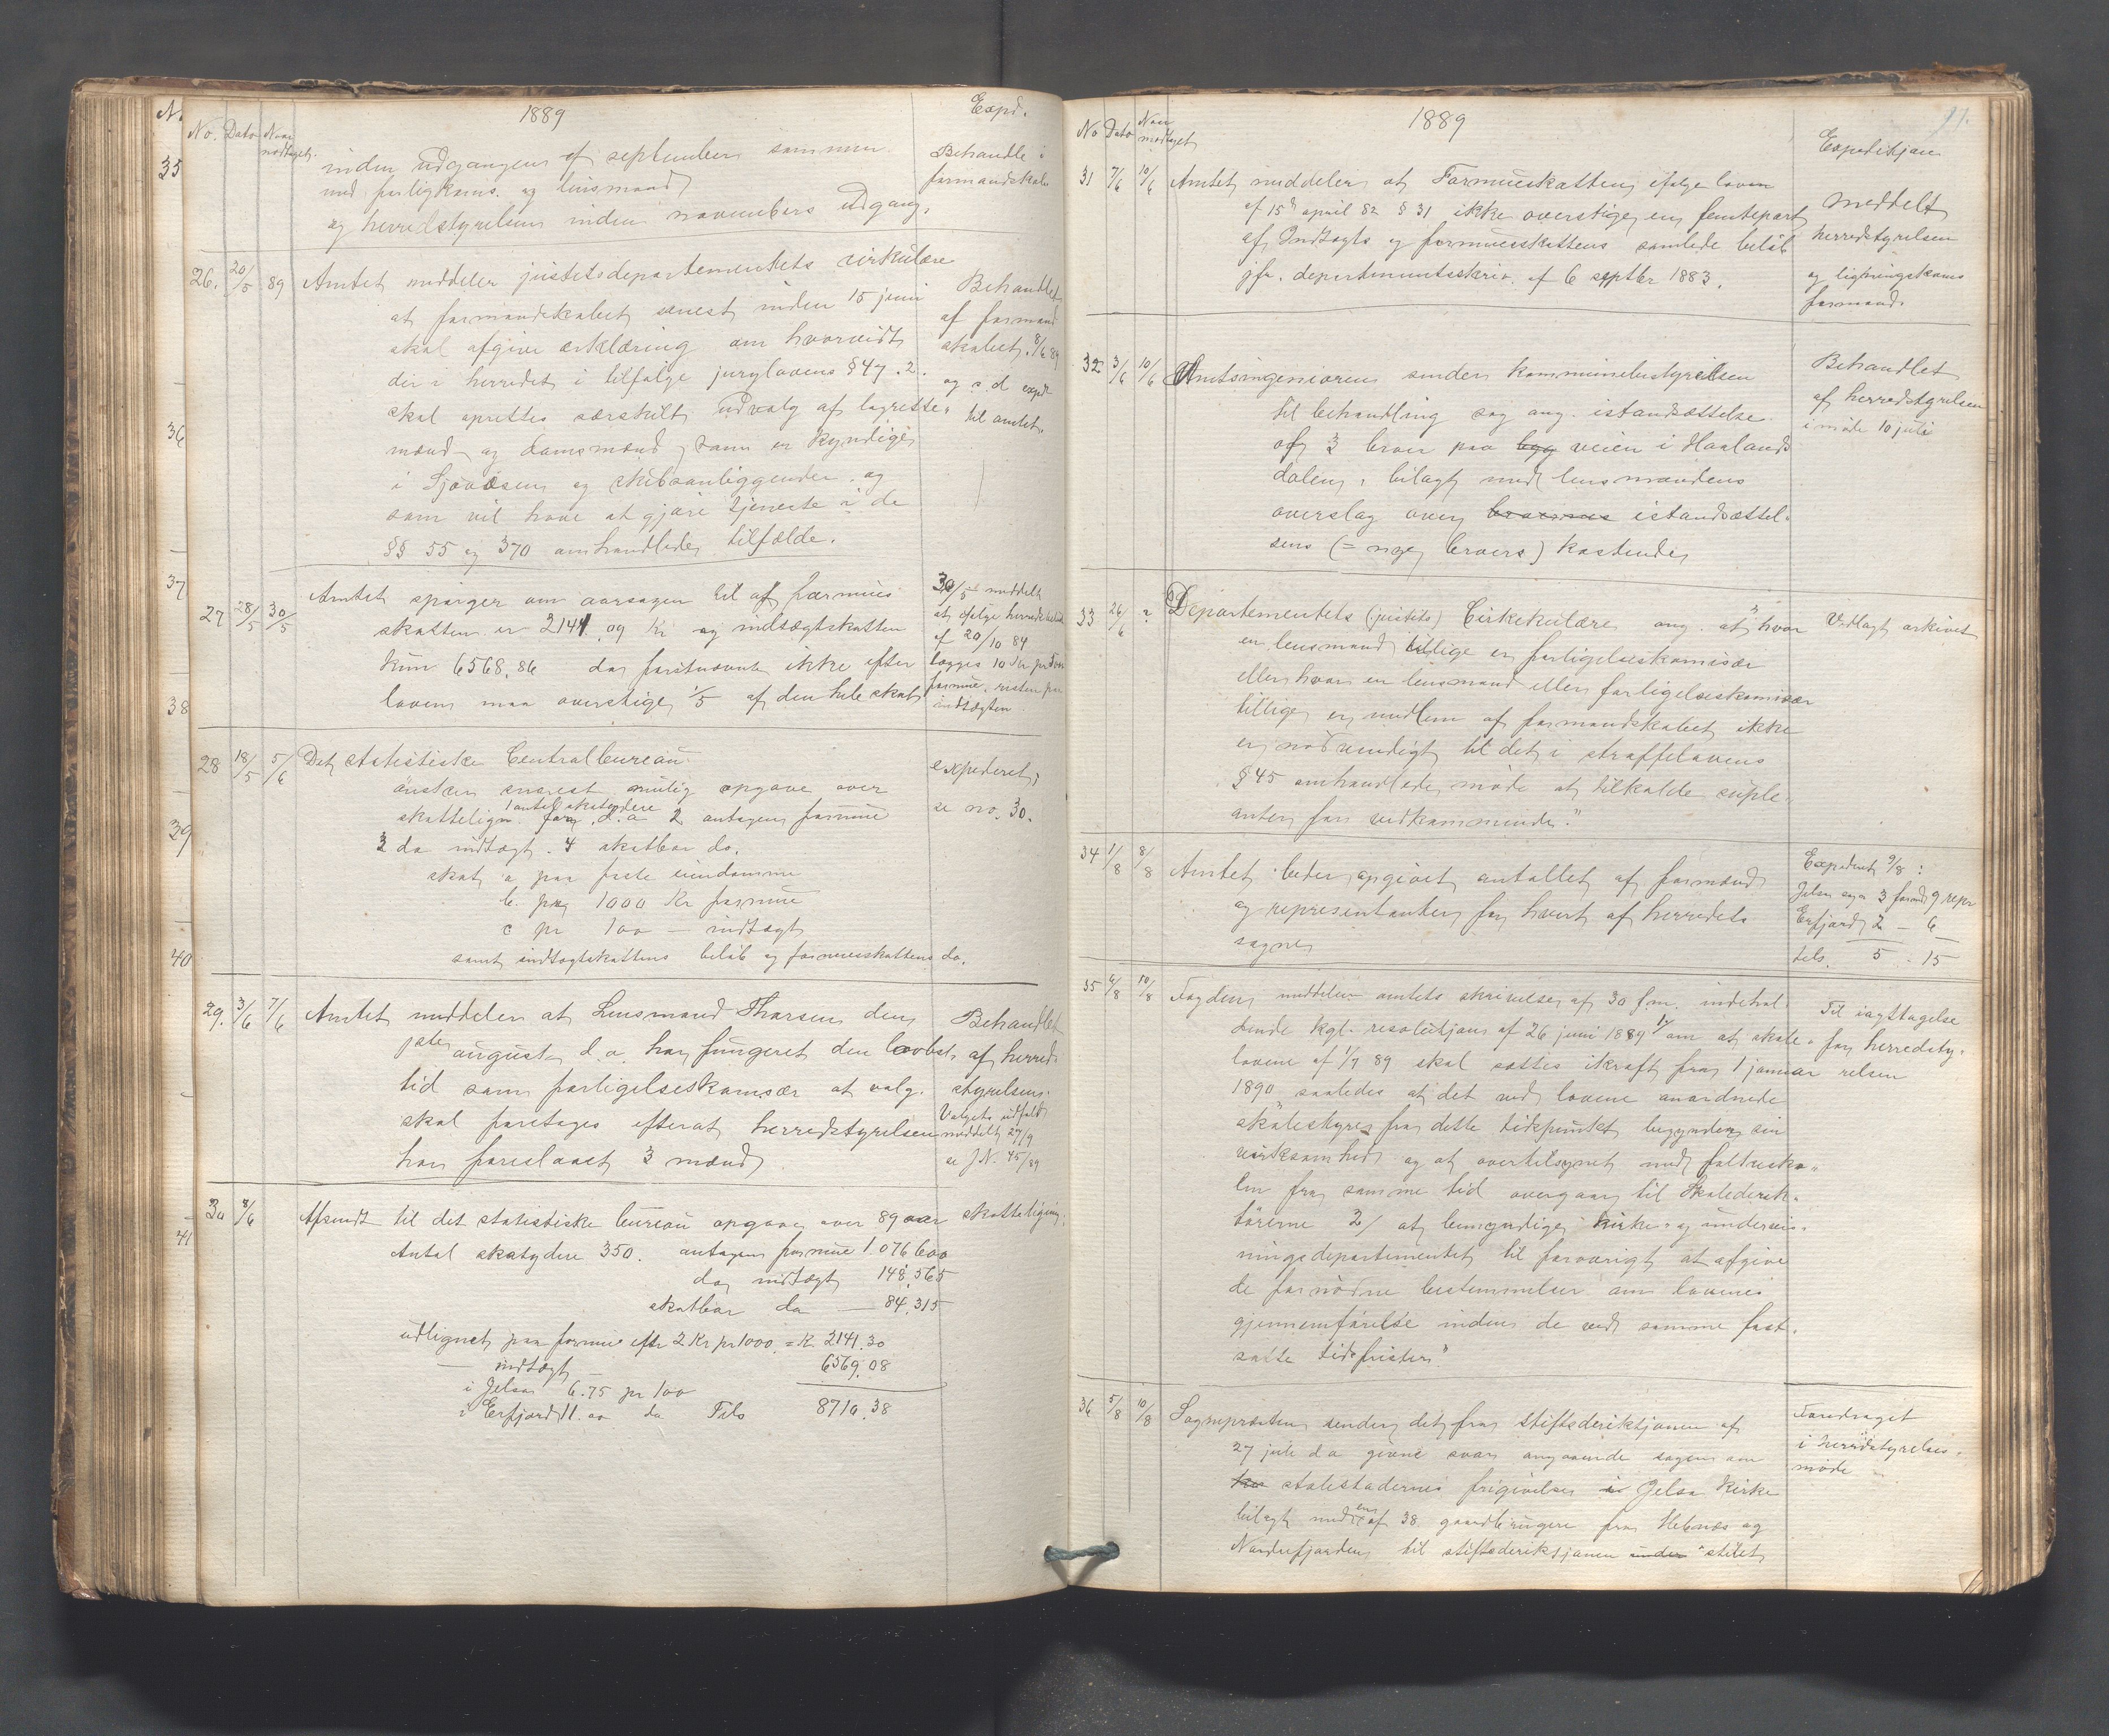 No. Dato Naar modtaget. 1889 Expd.
inden udgangen af september sammen
med forligkoms. og lensmand
og herredstyrelsen inden novembers udgang.
Behandle i
formandskabe
26. 20/5 89 Amtet meddeler justitsdepartementets cirkülære
at formandskabet senest inden 15 juni
skal afgive erklæring om hvorvidt
der i herredet i tilfølge jurylovens § 47. 2.
skal oprettes særskilt udvalg af lagrette-
mænd og domsmænd, som er kyndige
i Sjøvæsen og skibsanliggender og
som vil have at gjøre tjeneste i de
§§ 55 og 370 omhandlede tilfælde.
Behandlet
af formand
skabet. 8/6 89
og s. d. expdt
til amtet.
27 28/5 30/5 Amtet spørger om aarsagen til at formües
skatten er 2141,09 Kr og indtægtskatten
kün 6568,86 da førstnævnte ikke efter
loven maa overstige 1/5 af den hele skat
30/5 meddelt
at ifølge herredsbeslut
af 20/10 84
lægges 10 Kr pr
formue, resten paa
indtægten
28 18/5 5/6 Det statistiske Centralbureau
ønsker snarest mülig opgave over
skattelign. for d. a. 1 antal skatydere 2 antagen formue
3 do indtægt. 4 skatbar do.
skat a paa faste eiendomme
b. pr 1000 Kr formue
c pr 100 — indtægt
samt indtægtskattens beløb og formuesskattens do.
expederet,
se no. 30.
29. 3/6 7/6 Amtet meddeler at Lensmand Thorsen den
1ste august d. a. har fungeret den lovbest.
tid som forligelseskomsær at valg
skal foretages efterat herredstyrelsen
har foreslaaet 3 mænd
Behandlet
af herred-
styrelsen.
Valgets udfald
meddelt 27/9
se J.N. 45/89
30 8/6 Afsendt til det statistiske bureau opgave over 89 aar skatteligning.
Antal skatydere 350. antagen formue 1.076600
do indtægt 148.565
skatbar do — 84.315
üdlignet paa formue efter 2 Kr pr 1000. = Kr. 2141.30
— indtægt 6569.08
i Jelsa 6.75 pr 100
i Erfjord 11.00 do Tils 8710.38
35
36
37
38
39
40
41
No Dato Naar modtaget 1889 Expeditjon 11.
31 7/6 10/6 Amtet meddeler at Formueskatten ifølge loven
af 15de april 82 § 31 ikke overstiger en femtepart
af Indtægts og formuesskattens samlede beløb
jfr. departementsskriv. af 6 septbr 1883.
Meddelt
herredstyrelsen
og ligningskoms
formand.
32 3/6 10/6 Amtsingeniøren sender kommunebestyrelsen
til behandling sag ang. istandsættelse
af 3 broer paa byg veien i Haalands
dalen, bilagt med lensmandens
overslag over broernes istandsættel-
sens (= nye broers) kostende
Behandlet
af herredstyrelsen
i møde 10 juli
33 26/6 ? Departementets (justits) Cirkekulære ang. at "hvor
en lensmand tillige er forligelseskomisær
eller hvor en lensmand eller forligelseskomisær
tillige er medlem af formandskabet ikke
er nødvendigt til det i straffelovens
§ 45 omhandlede møde at tilkalde süple-
anter for vedkommende."
Vedlagt arkivet
34 1/8 8/8 Amtet beder opgivet antallet af formænd
og representanter for hvert af herredets
sogne
Expederet 9/8:
Jelsa sogn 3 formd 9 repr
Erfjord 2 — 6
tils. 5 - 15
35 6/8 10/8 Fogden meddeler amtets skrivelse af 30 f.m. indehol-
dende kgl. resolutjons af 26 juni 1889 1/ om at skole-
lovene af 1/7 89 skal sættes ikraft fra 1 januar
1890 saaledes at det ved lovene anordnede
skolestyre fra dette tidspunktet begynder sin
virksomhed og at overtilsynet med folkesko-
len fra samme tid overgaar til Skoledirek-
tørerne 2/ at bemyndige kirke- og underviis-
ningsdepartementet til forøvrigt at afgive
de fornødne bestemmelser om lovenes
gjennemførelse inden de ved samme fast-
satte tidsfrister"
Til iagttagelse
for herredsty-
relsen
36 5/8 10/8 Sognepræsten sender det fra stiftsderiktjonen af
27 juli d a givne svar angaaende sagen om
stolestadernes frigivelse i Jelsa Kirke
bilagt med en af 38 gaardbrugere fra Hebnes og
Nordrefjorden til stiftsderiktjonen under stilet
Foredraget
i herredstyrelses-
møde